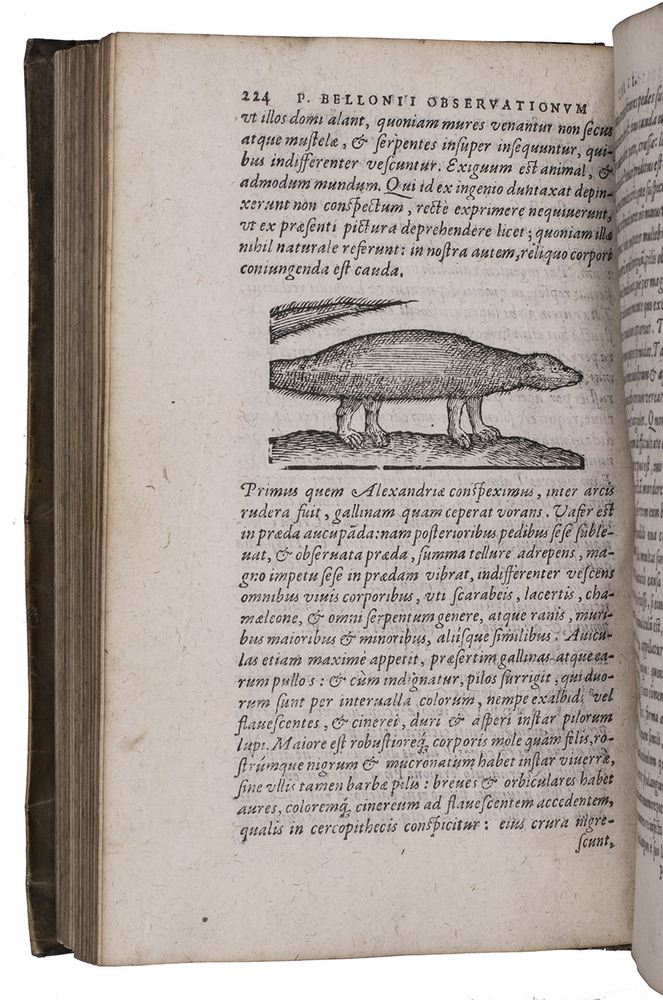 224 P. BELLONII OBSERVATIONVM
vt illos domi alant, quoniam mures venantur non secus
atque mustelæ, & serpentes insuper insequuntur, qui-
bus indifferenter vescuntur. Exiguum est animal, &
admodum mundum. Qui id ex ingenio duntaxat depin-
xerunt non conspectum, recte exprimere nequiuerunt,
vt ex præsenti pictura deprehendere licet; quoniam illa
nihil naturale referunt: in nostra autem, reliquo corpori
coniungenda est cauda.
Primus quem Alexandriæ conspeximus, inter arcis
rudera fuit, gallinam quam ceperat vorans. Vafer est
in præda aucupãda: nam posterioribus pedibus sese suble-
uat, & obseruata præda, summa tellure adrepens, ma-
gno impetu sese in prædam vibrat, indifferenter vescens
omnibus viuis corporibus, vti scarabeis, lacertis, cha-
mæleone, & omni serpentum genere, atque ranis, muri-
bus maioribus & minoribus, aliisque similibus. Auicu-
las etiam maximè appetit, præsertim gallinas atque ea-
rum pullos: & cùm indignatur, pilos surrigit, qui duo-
rum sunt per interualla colorum, nempe exalbidi vel
flauescentes, & cinerei, duri & asperi instar pilorum
lupi. Maiore est robustioreq́; corporis mole quàm felis, ro-
strúmque nigrum & mucronatum habet instar viuerræ,
sine vllis tamen barbæ pilis: breues & orbiculares habet
aures, coloremq́; cinereum ad flauescentem accedentem,
qualis in cercopithecis conspicitur: eius crura nigre-
scunt,